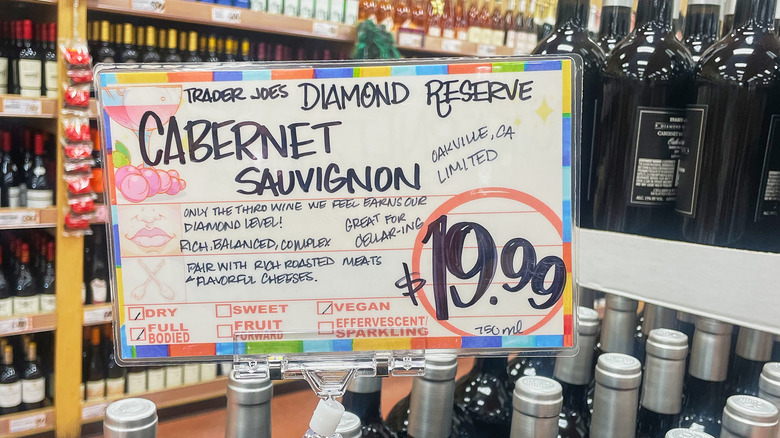 TRADER JOE'S DIAMOND RESERVE
CABERNET
SAUVIGNON
OAKVILLE, CA
LIMITED
ONLY THE THIRD WINE WE FEEL EARNS OUR
DIAMOND LEVEL!
RICH, BALANCED, COMPLEX
GREAT FOR
CELLAR-ING
PAIR WITH RICH ROASTED MEATS
& FLAVORFUL CHEESES.
$19.99
750 ml
DRY
SWEET
VEGAN
FULL
BODIED
FRUIT
FORWARD
EFFERVESCENT/
SPARKLING